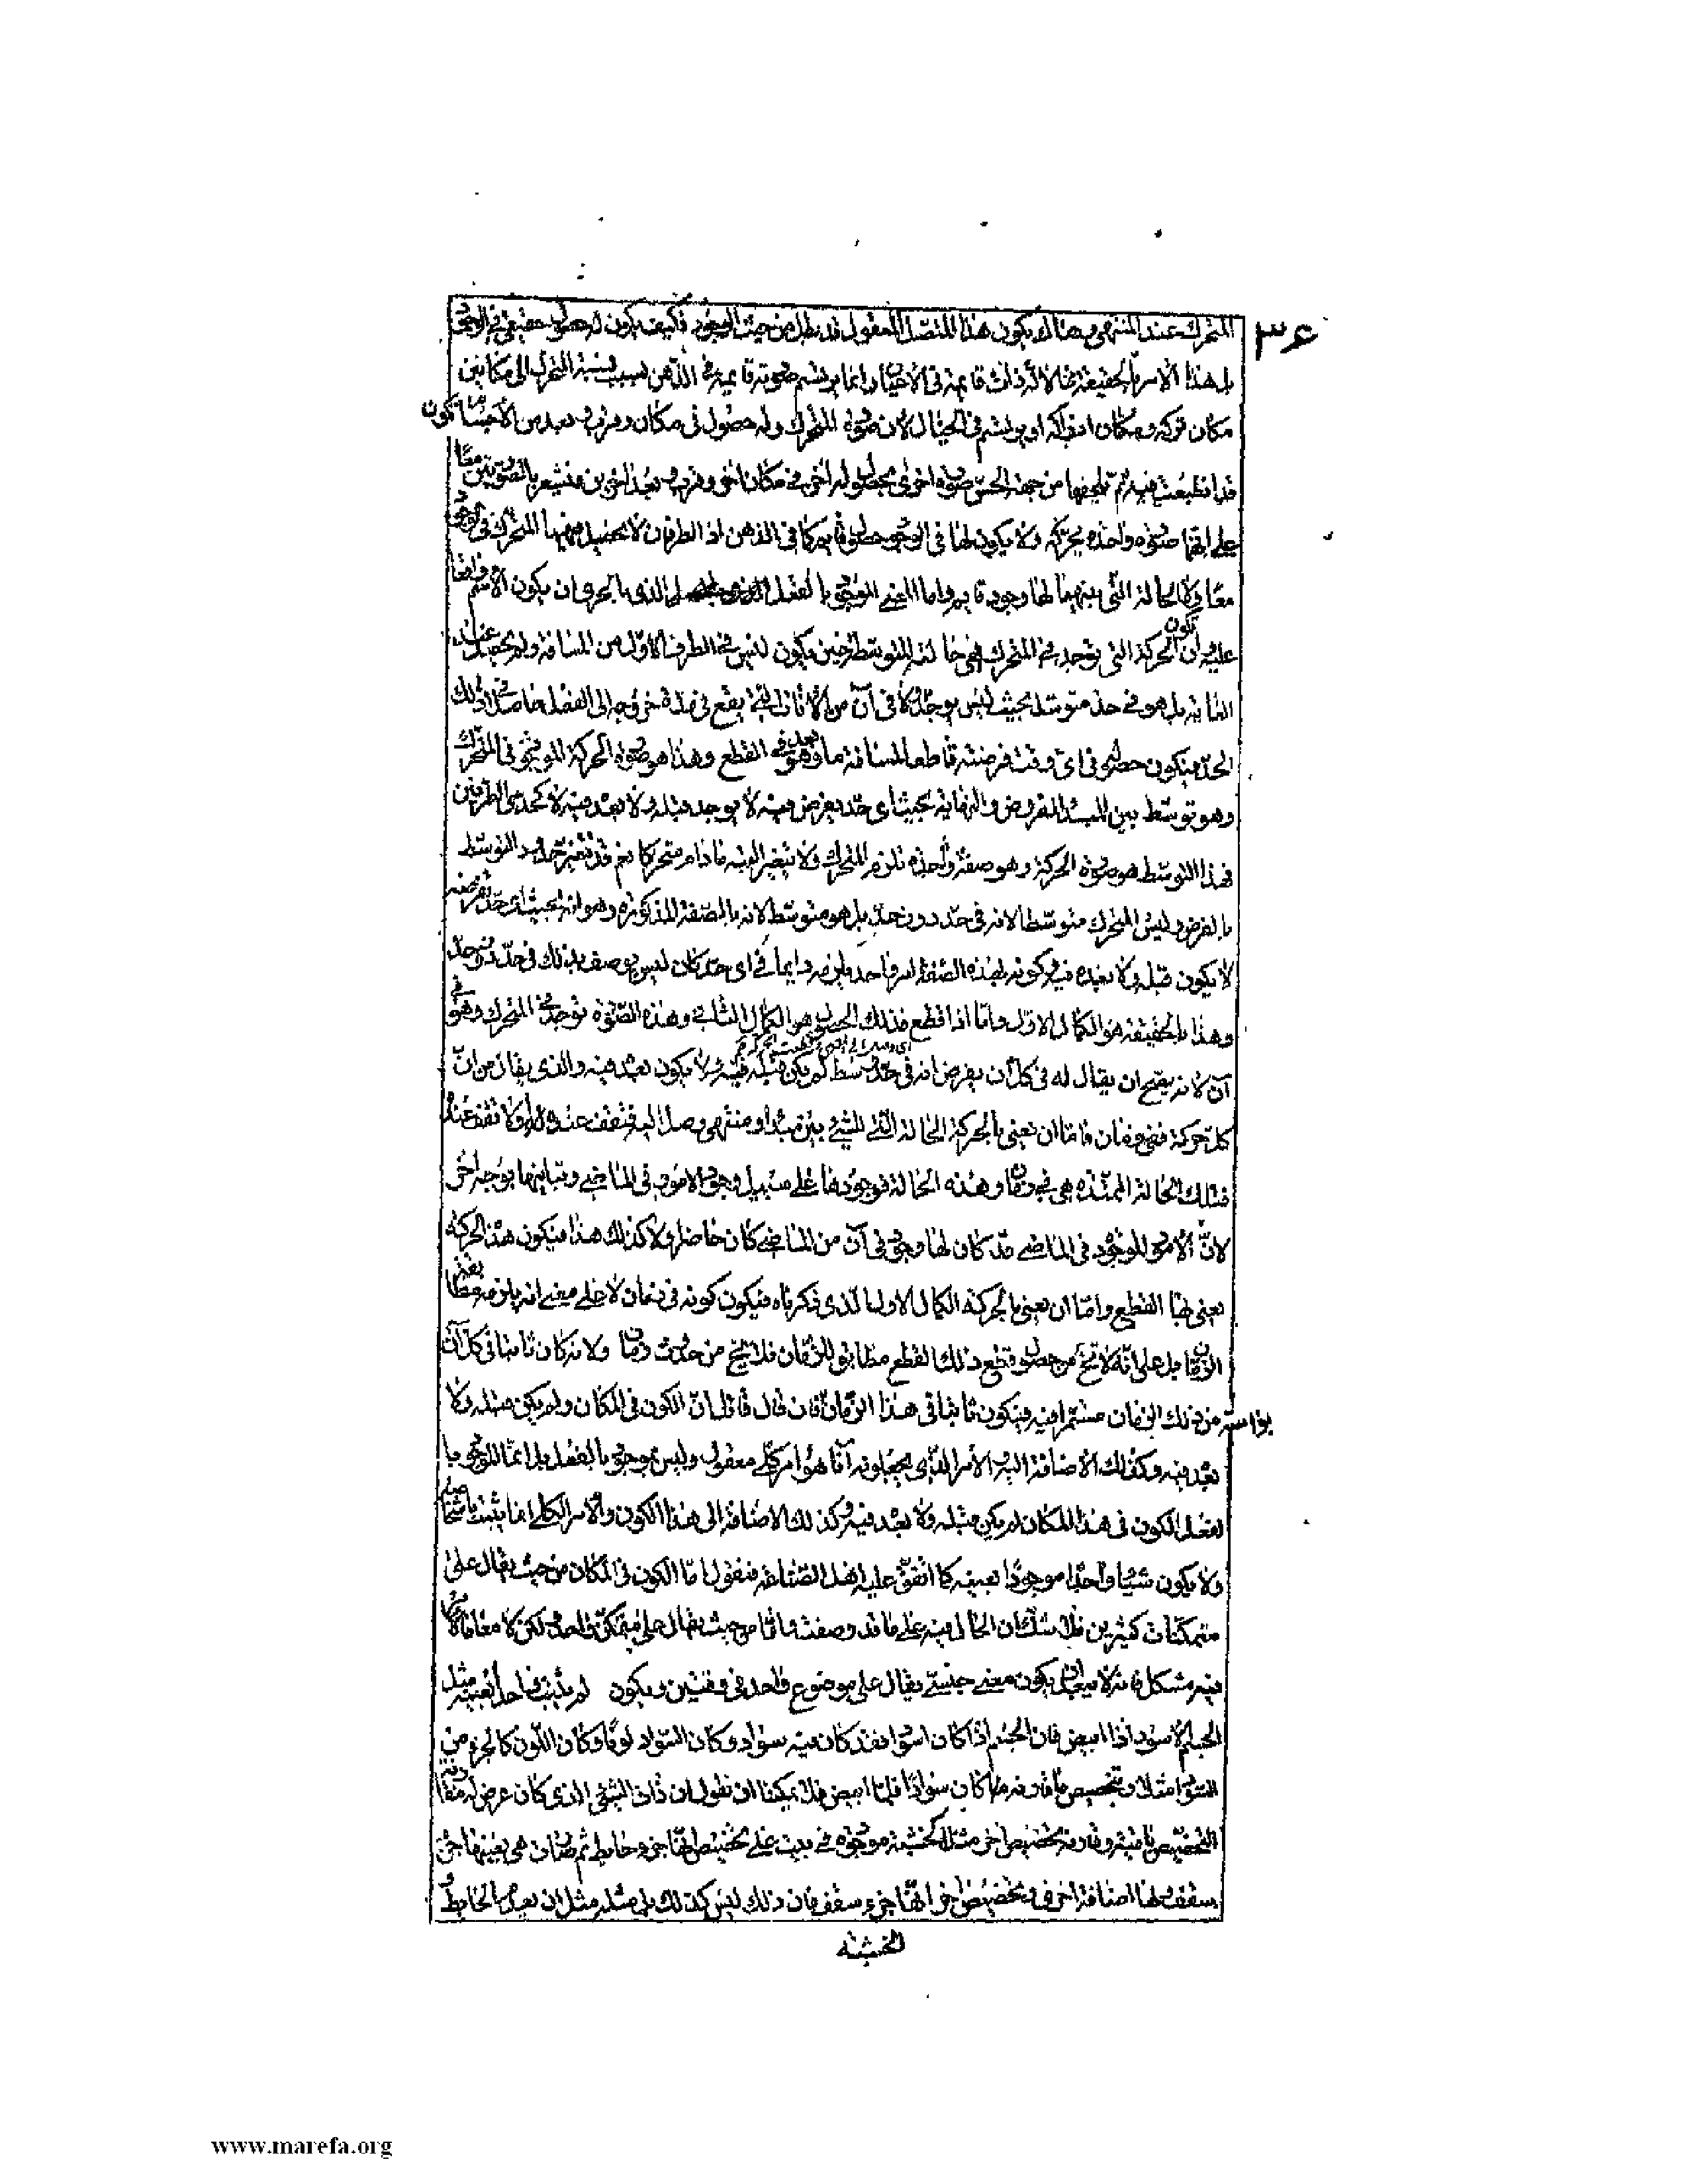 ٣۶
المتحرك عند المنتهى وهناك يكون هذا المتصل المعقول قد بطل من حيث الوجود فكيف يكون له حصول حقيقي في الوجود
بل هذا الأمر بالحقيقة مما لا ذات قائمة في الأعيان وانما يرتسم صورته قائمة في الذهن بسبب نسبة المتحرك الى مكانين
مكان تركه ومكان ادركه او يرتسم في الخيال لأن صورة المتحرك وله حصول في مكان وقرب وبعد من الأجسام تكون
قد انطبعت فيه ثم تلحقها من جهة الحس صورة اخرى بحصول له آخر في مكان آخر وقرب وبعد آخرين فيشعر بالصورتين معا
على انهما صورة واحدة بحركة ولا يكون لها في الوجود حصول قايم كما في الذهن اذ الطرفان لا يحصل فيهما المتحرك في الوجود
معا ولا الحالة التي بينهما لها وجود قايم واما المعنى الموجود بالفعل الذي بالحرى ان يكون الاسم واقعا
عليه وان تكون الحركة التي توجد في المتحرك فهي حالته المتوسطة حين يكون ليس في الطرف الاول من المسافة ولم يحصل عند
الغاية بل هو في حد متوسط بحيث ليس يوجد ولا في آن من الآنات التي يقع في مدة خروجه الى الفعل حاصلا في ذلك
الحد فيكون حصوله في اى وقت فرضته قاطعا لمسافة ما وهو بعد في القطع وهذا هو صورة الحركة الموجودة في المتحرك
وهو توسط بين المبدأ المفروض والنهاية بحيث اى حد يفرض فيه لا يوجد قبله ولا بعده فيه لا كحدى الطرفين
فهذا التوسط هو صورة الحركة وهو صفة واحدة تلزم المتحرك ولا يتغير البتة ما دام متحركا نعم قد تتغير حدود التوسط
بالفرض وليس المتحرك متوسطا لانه في حد دون حد بل هو متوسط لانه بالصفة المذكورة وهو انه بحيث اى حد تفرضه
لا يكون قبله ولا بعده فيه وكونه بهذه الصفة امر واحد يلزمه دايما في اى حد كان ليس يوصف بذلك في حد دون حد
وهذا بالحقيقة هو الكمال الاول واما اذا قطع فذلك الحصول هو الكمال الثاني وهذه الصورة توجد في المتحرك وهو في
آن لانه يصح ان يقال له في كل آن يفرض انه في حد وسط لم يكن قبله فيه ولا يكون بعده فيه والذى يقال من ان
كل حركة ففى زمان فاما ان يعنى بالحركة الحالة التي للشىء بين مبدأ ومنتهى وصل اليه فتقف عنده او لا تقف عنده
فتلك الحالة الممتدة هي في زمان وهذه الحالة فوجودها على سبيل وجود الامور في الماضى وتباينها بوجه آخر
لانّ الأمور الموجودة في الماضى قد كان لها وجود في آن من الماضى كان حاضرا ولا كذلك هذا فيكون هذه الحركة
يعنى بها القطع واما ان يعنى بالحركة الكمال الاول الذى ذكرناه فيكون كونه في زمان لا على معنى انه يلزمه مطابقة
الزمان بل على انّه لا يخ من حصول قطع ذلك القطع مطابق للزمان فلا يخ من حدوث زمان ولانه كان ثابتا في كل آن
من ذلك الزمان مستمرا فيه فيكون ثابتا في هذا الزمان بواسطته فان قال قائل انّ الكون في المكان ولم يكن قبله ولا
بعده فيه وكذلك الاضافة اليه والأمر الذى يجعلونه آنا هو امر كلى معقول وليس بموجود بالفعل بل انما الموجود با
لفعل الكون في هذا المكان لم يكن قبله ولا بعده فيه وكذلك الاضافة الى هذا الكون والأمر الكلى انما يثبت باشخاصه
ولا يكون شيئا واحدا موجودا بعينه كما اتفق عليه اهل الصناعة فنقول امّا الكون في المكان من حيث يقال على
متمكنات كثيرين فلا شك ان الحال فيه على ما قد وصفت واما من حيث يقال على متمكن واحد ولكن لا معا فالامر
فيه مشكل فانه لا يبعد ان يكون معنى جنسى يقال على موضوع واحد في وقتين ويكون لم يثبت واحدا بعينه مثل
الجسم الاسود اذا ابيض فان الجسم اذا كان اسود فقد كان فيه سواد وكان السواد لونا وكان اللون كالجزء من
السواد مثلا وتخصيص ما قارنه ما كان سوادا فلما ابيض فلا يمكننا ان نقول ان ذات الشىء الذى كان عرض له مقارنة
التخصيص باقية وقارنه تخصيص آخر مثل الخشبة موجودة في بيت على تخصيص انها جزء حايط ثم صارت هي بعينها جزء
سقف ولها اضافة اخرى وتخصيص آخر انّها جزء سقف فان ذلك ليس كذلك بل مثله مثل ان يعدم الحايط و
الخشبة
www.marefa.org